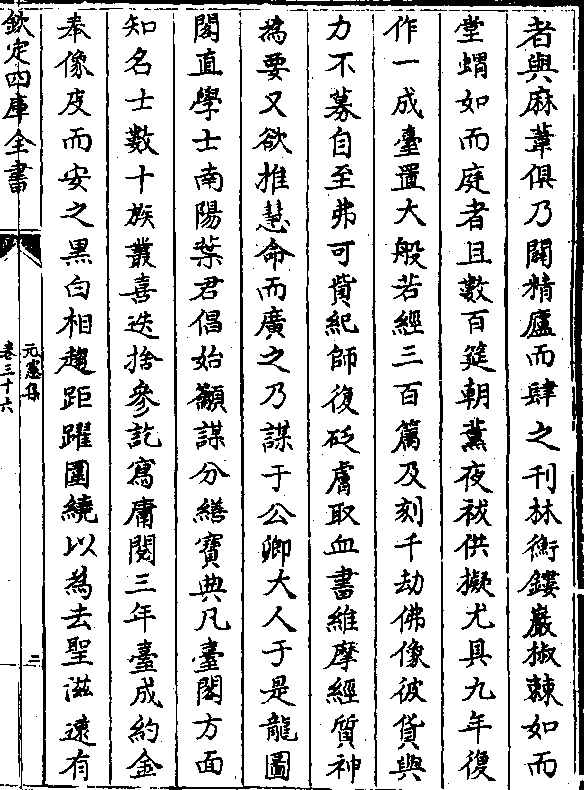 者與麻葦俱乃闢精廬而肆之刊林衡鏤巖椒棘如而
堂蝟如而庭者且數百筵朝薰夜祓供擬尤具九年復
作一成臺置大般若經三百篇及刻千劫佛像彼貨與
力不募自至弗可貲紀師復砭膚取血書維摩經質神
為要又欲推慧命而廣之乃謀于公卿大人于是龍圖
閣直學士南陽葉君倡始籲謀分繕寶典凡臺閣方面
知名士數十族叢喜迭捨參訖寫庸閱三年臺成約金
奉像庋而安之黑白相趨距躍圍繞以為去聖滋遠有
欽定四庫全書
元憲集
卷三十六
二